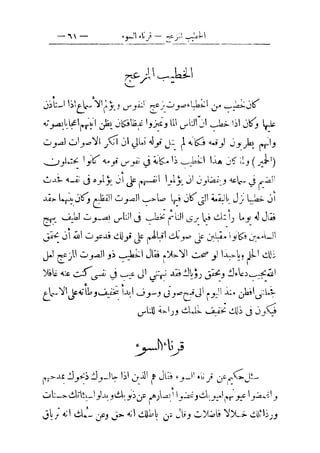 الخطيب المزعج — قرناء السوء — ٦١ —
الخطيب المزعج
كان خطيب من الخطباء صوت يزعج النفوس ويؤلم الأسماع اذا استأذن
عليها وكان اذا خطب ان الناس الما وتميزوا غيظا فكان يظن انينهم اعجابا بصوته
وانهم يطربون لوقعه فكانه لم يتل قوله تعالى ان انكر الاصوات لصوت
(الحمير) ولما كان هذا الخطيب ذا مكانة في نفوس قومه كانوا يحتملون
الضيم في سماعه ويفضلون ان يؤلموا انفسهم على أن يؤلموه في نفسه فحدث
أن خطيبا نزل بالبقعة التي كان فيها صاحب الصوت الفظيع وكان بينهما حقد
فقال له يوما رأيتك فيما يرى النائم تخطب في الناس بصوت لطيف يبهج
السامعين فكانوا مقبلين على صوتك اقبالهم على قولك فدعوت الله أن يحقق
ذلك الحلم وياحبذا لو صحت الاحلام فقال الخطيب ذو الصوت المزعج لعل
الله يجيب دعاءك ويحقق رؤياك فقد نبهتني الى عيب في نفسي كنت عنه غافلا
جعلتني افطن منذ اليوم الى قبح صوتي وسوف ابدأ بتخفيف وطأته على الاسماع
فيكون في ذلك تخفيف لحلمك وراحة للناس
قرناء السوء
سئل حكيم عن قرناء السوء فقال هم الذين اذا جالسوك خدعوك بمدحهم
واغمضوا عيونهم عن عيوبك وغضوا أبصارهم عن ذنوبك وبدلوا سيئاتك حسنات
ورذائلك خلالا فاضلات وقال عن باطلك انه حق وعن سمك انه ترياق